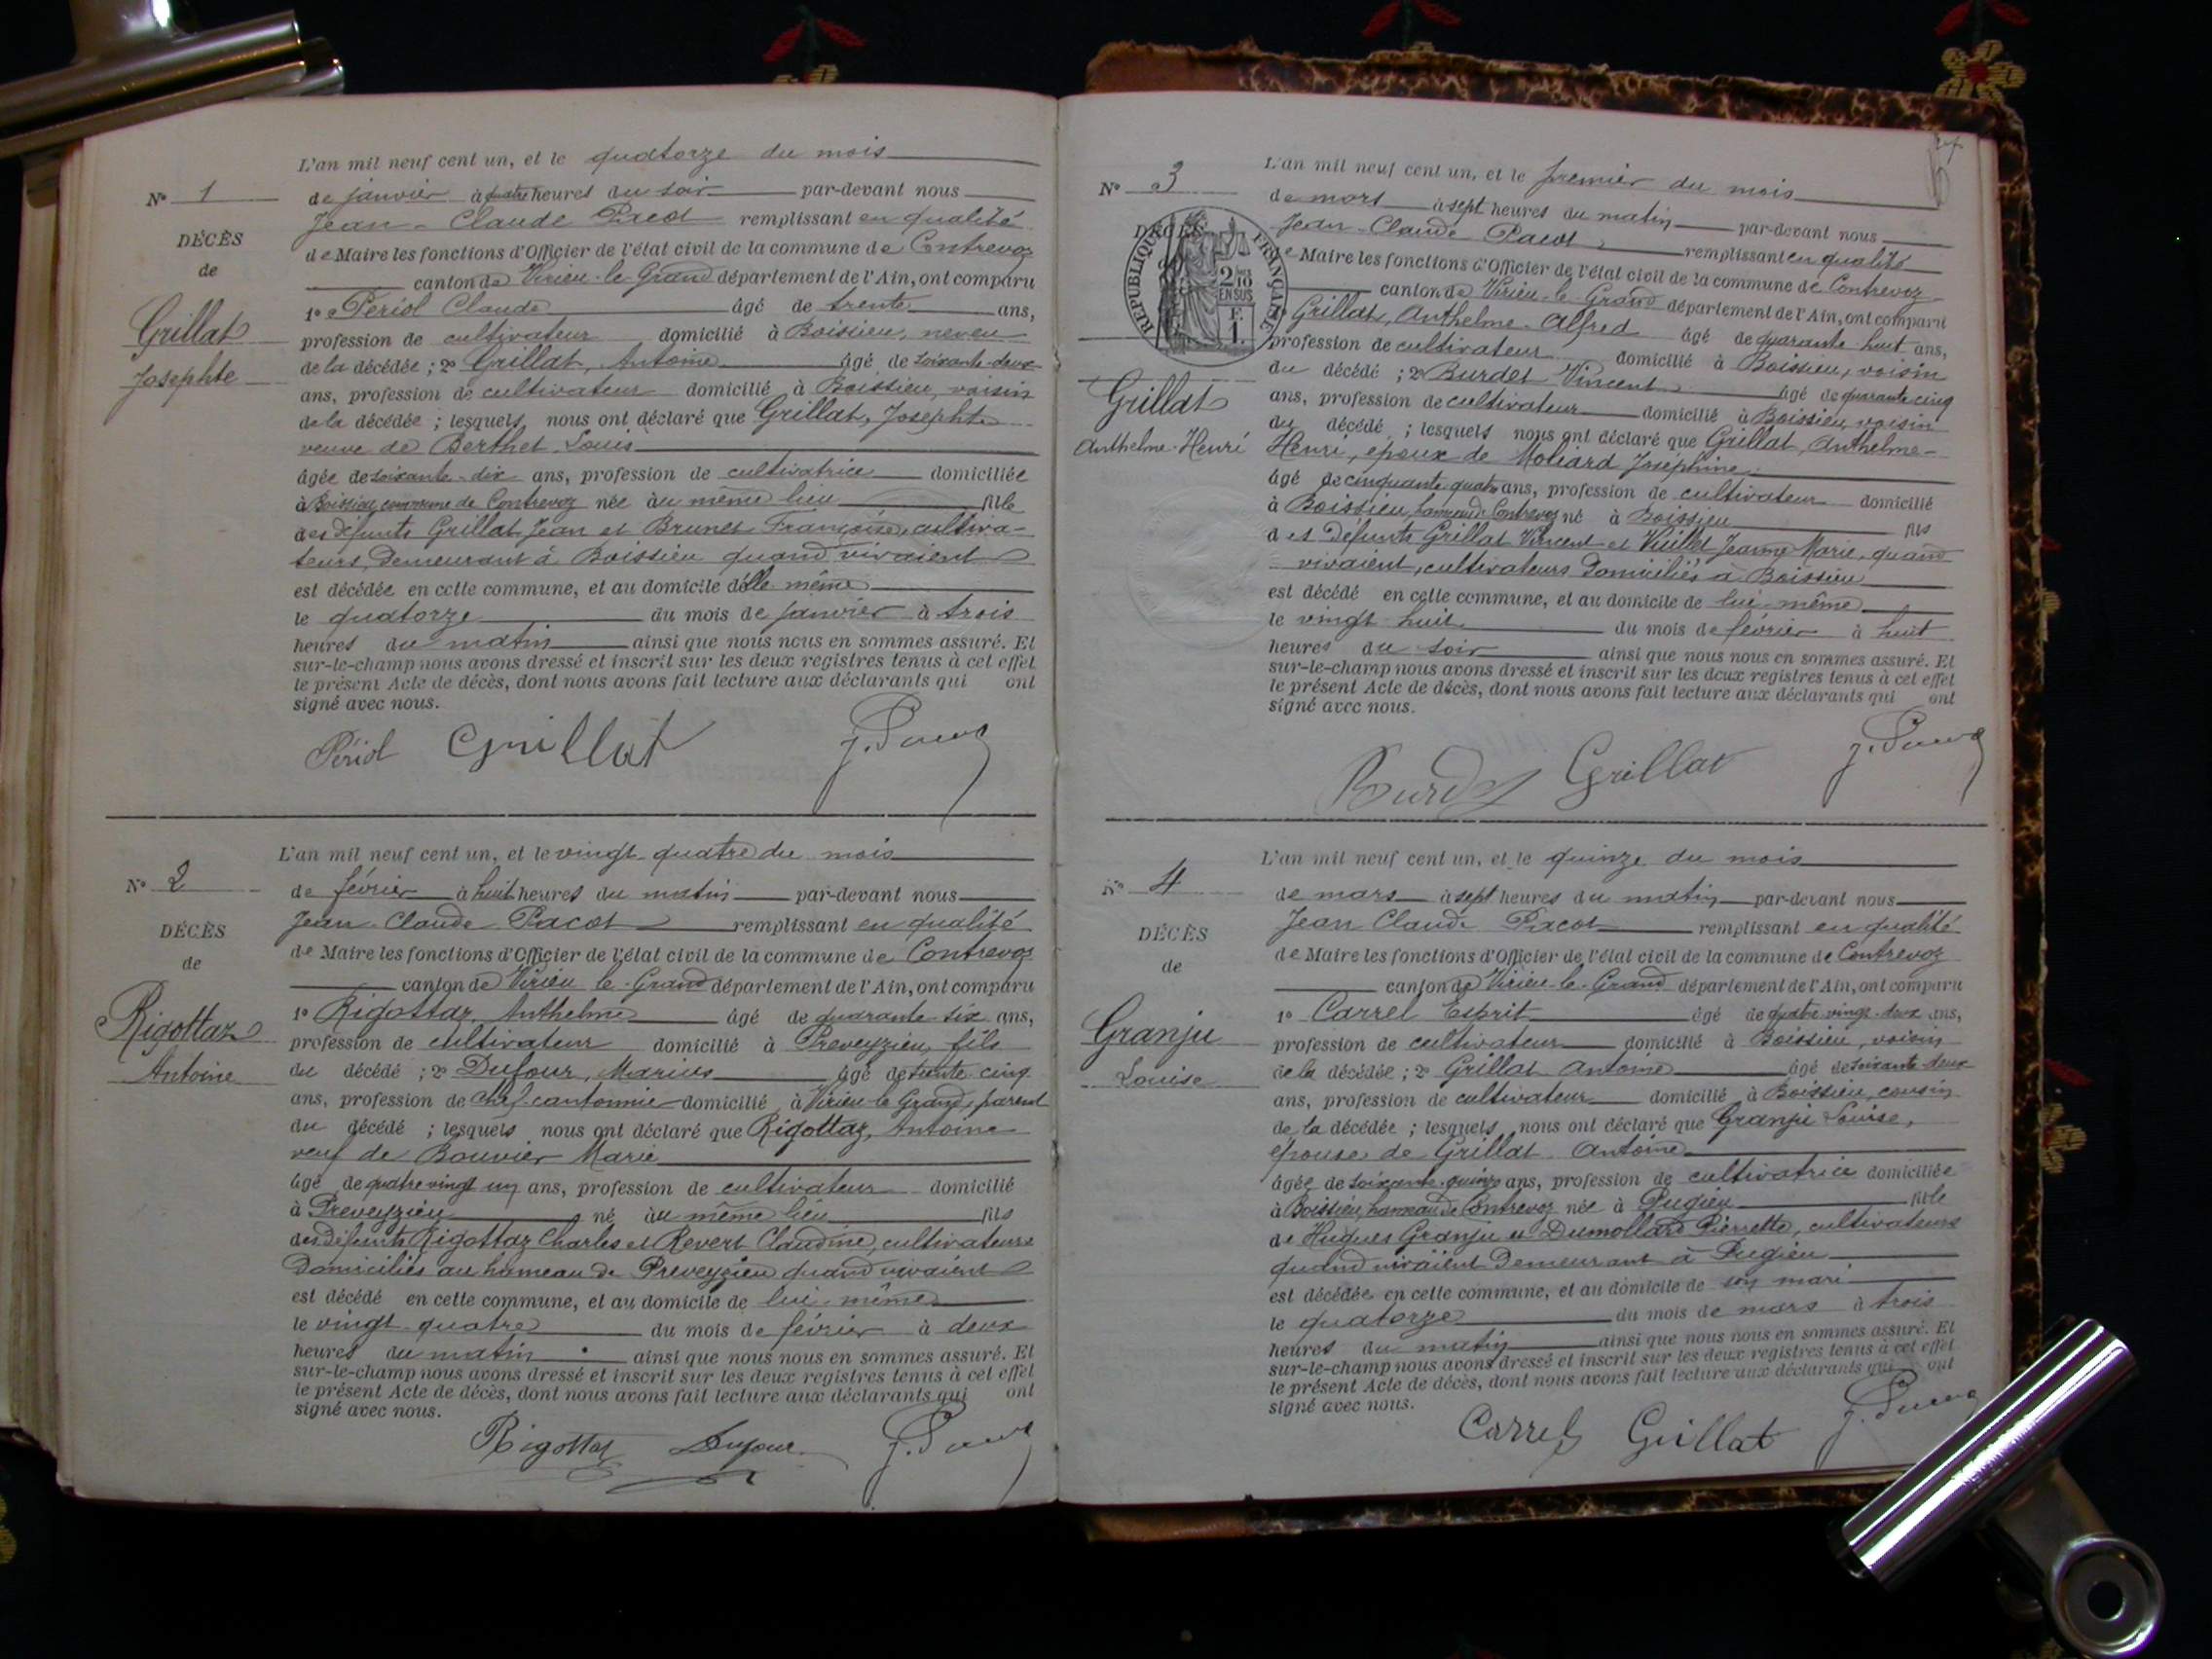 L'an mil neuf cent un, et le quatorze du mois
N° 1
de janvier à quatre heures du soir par-devant nous
Jean-Claude Pacot remplissant en qualité
DÉCÈS
de Maire les fonctions d'Officier de l'état civil de la commune de Contrevoz
de
canton de Virieu-le-Grand département de l'Ain, ont comparu
1° Périol Claude âgé de trente ans,
Grillat
profession de cultivateur domicilié à Boissieu, neveu
de la décédée ; 2° Grillat, Antoine âgé de soixante-deux
Josephte
ans, profession de cultivateur domicilié à Boissieu, voisin
de la décédée ; lesquels nous ont déclaré que Grillat, Josephte
veuve de Berthet Louis
âgée de soixante-dix ans, profession de cultivatrice domiciliée
à Boissieu commune de Contrevoz née à au même lieu fille
des défunts Grillat Jean et Brunet Françoise, cultiva-
teurs, demeurant à Boissieu quand vivaient
est décédée en cette commune, et au domicile d'elle même
le quatorze du mois de janvier à trois
heures du matin ainsi que nous nous en sommes assuré. Et
sur-le-champ nous avons dressé et inscrit sur les deux registres tenus à cet effet
le présent Acte de décès, dont nous avons fait lecture aux déclarants qui ont
signé avec nous.
Périol Grillat J. Pacot
L'an mil neuf cent un, et le vingt-quatre du mois
N° 2
de février à huit heures du matin par-devant nous
Jean-Claude Pacot remplissant en qualité
DÉCÈS
de Maire les fonctions d'Officier de l'état civil de la commune de Contrevoz
de
canton de Virieu-le-Grand département de l'Ain, ont comparu
1° Rigottaz, Anthelme âgé de quarante-six ans,
Rigottaz
profession de cultivateur domicilié à Preveyzieu, fils
du décédé ; 2° Dufour, Marius âgé de trente-cinq
Antoine
ans, profession de Chef-cantonnier domicilié à Virieu-le-Grand, parent
du décédé ; lesquels nous ont déclaré que Rigottaz, Antoine
veuf de Bouvier Marie
âgé de quatre vingt un ans, profession de cultivateur domicilié
à Preveyzieu né à au même lieu fils
des défunts Rigottaz Charles et Revert Claudine, cultivateurs
domiciliés au hameau de Preveyzieu quand vivaient
est décédé en cette commune, et au domicile de lui-même
le vingt-quatre du mois de février à deux
heures du matin ainsi que nous nous en sommes assuré. Et
sur-le-champ nous avons dressé et inscrit sur les deux registres tenus à cet effet
le présent Acte de décès, dont nous avons fait lecture aux déclarants qui ont
signé avec nous.
Rigottaz Dufour J. Pacot
L'an mil neuf cent un, et le premier du mois
N° 3
de mars à sept heures du matin par-devant nous
Jean-Claude Pacot remplissant en qualité
DÉCÈS
de Maire les fonctions d'Officier de l'état civil de la commune de Contrevoz
RÉPUBLIQUE FRANÇAISE
2/10 EN SUS
F. 1.
canton de Virieu-le-Grand département de l'Ain, ont comparu
Grillat, Anthelme-Alfred âgé de quarante-huit ans,
profession de cultivateur domicilié à Boissieu, voisin
du décédé ; 2° Burdet Vincent âgé de quarante cinq
Grillat
ans, profession de cultivateur domicilié à Boissieu, voisin
du décédé ; lesquels nous ont déclaré que Grillat, Anthelme-
Anthelme-Henri
Henri, époux de Moliard Joséphine
âgé de cinquante quatre ans, profession de cultivateur domicilié
à Boissieu, hameau de Contrevoz né à Boissieu fils
des défunts Grillat Vincent et Vuillet Jeanne Marie, quand
vivaient, cultivateurs domiciliés à Boissieu
est décédé en cette commune, et au domicile de lui-même
le vingt-huit du mois de février à huit
heures du soir ainsi que nous nous en sommes assuré. Et
sur-le-champ nous avons dressé et inscrit sur les deux registres tenus à cet effet
le présent Acte de décès, dont nous avons fait lecture aux déclarants qui ont
signé avec nous.
Burdet Grillat J. Pacot
L'an mil neuf cent un, et le quinze du mois
N° 4
de mars à sept heures du matin par-devant nous
Jean Claude Pacot remplissant en qualité
DÉCÈS
de Maire les fonctions d'Officier de l'état civil de la commune de Contrevoz
de
canton de Virieu-le-Grand département de l'Ain, ont comparu
1° Carrel Esprit âgé de quatre vingt-deux ans,
Granju
profession de cultivateur domicilié à Boissieu, voisin
de la décédée ; 2° Grillat Antoine âgé de soixante-deux
Louise
ans, profession de cultivateur domicilié à Boissieu, cousin
de la décédée ; lesquels nous ont déclaré que Granju Louise,
épouse de Grillat Antoine
âgée de soixante-quinze ans, profession de cultivatrice domiciliée
à Boissieu, hameau de Contrevoz née à Pugieu fille
de Hugues Granju et Dumollard Pierrette, cultivateurs
quand vivaient demeurant à Pugieu
est décédée en cette commune, et au domicile de son mari
le quatorze du mois de mars à trois
heures du matin ainsi que nous nous en sommes assuré. Et
sur-le-champ nous avons dressé et inscrit sur les deux registres tenus à cet effet
le présent Acte de décès, dont nous avons fait lecture aux déclarants qui ont
signé avec nous.
Carrel Grillat J. Pacot